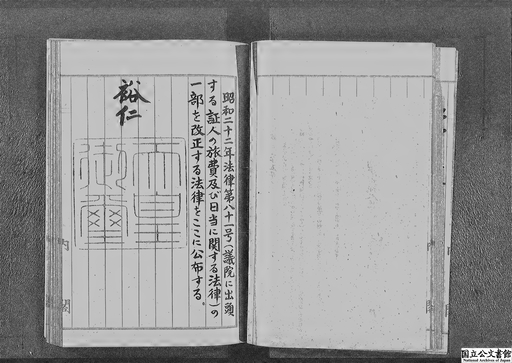 昭和二十二年法律第八十一号（議院に出頭
する証人の旅費及び日当に関する法律）の
一部を改正する法律をここに公布する。
裕仁
天皇
御璽
内閣
国立公文書館
National Archives of Japan